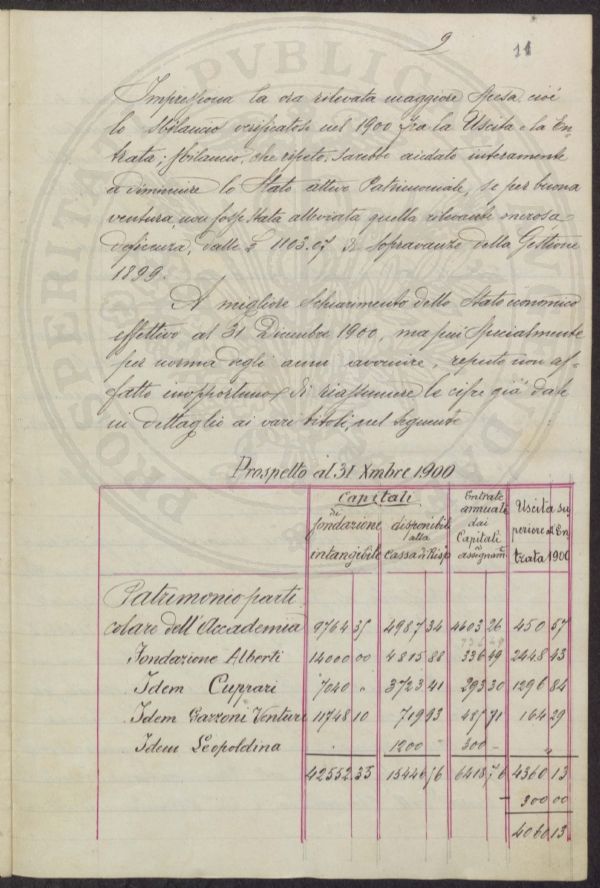 9
11
Impressiona la ora rilevata maggiore spesa, cioè
lo sbilancio verificatosi nel 1900 fra la Uscita e la En-
trata; sbilancio, che ripeto, sarebbe andato interamente
a diminuire lo Stato attivo Patrimoniale, se per buona
ventura, non fosse stata alleviata quella rilevante onerosa
deficienza, dalle £ 1103.07 di Sopravanzo della Gestione
1899.
A migliore schiarimento dello Stato economico
effettivo al 31 Dicembre 1900, ma più specialmente
per norma degli anni avvenire, reputo non af-
fatto inopportuno di riassumere le cifre già date
in dettaglio ai vari titoli, nel seguente
Prospetto al 31 Xmbre 1900
Capitali
di fondazione intangibile
disponibili alla Cassa di Risp
Entrate annuali dai Capitali assegnam
Uscita su periore al En trata 1900
Patrimonio parti
colare dell'Accademia 9764 35 4987 34 4603 26 450 57
Fondazione Alberti 14000 00 4815 88 336 49 2448 43
Idem Cuppari 7040 " 3723 41 293 30 1296 84
Idem Gazzoni Venturi 11748 10 719 93 485 71 164 29
Idem Leopoldina . 1200 - 300 - "
42552 35 15446 56 6418 76 4360 13
- 300 00
4060 13
PROSPERITATI PVBLICAE